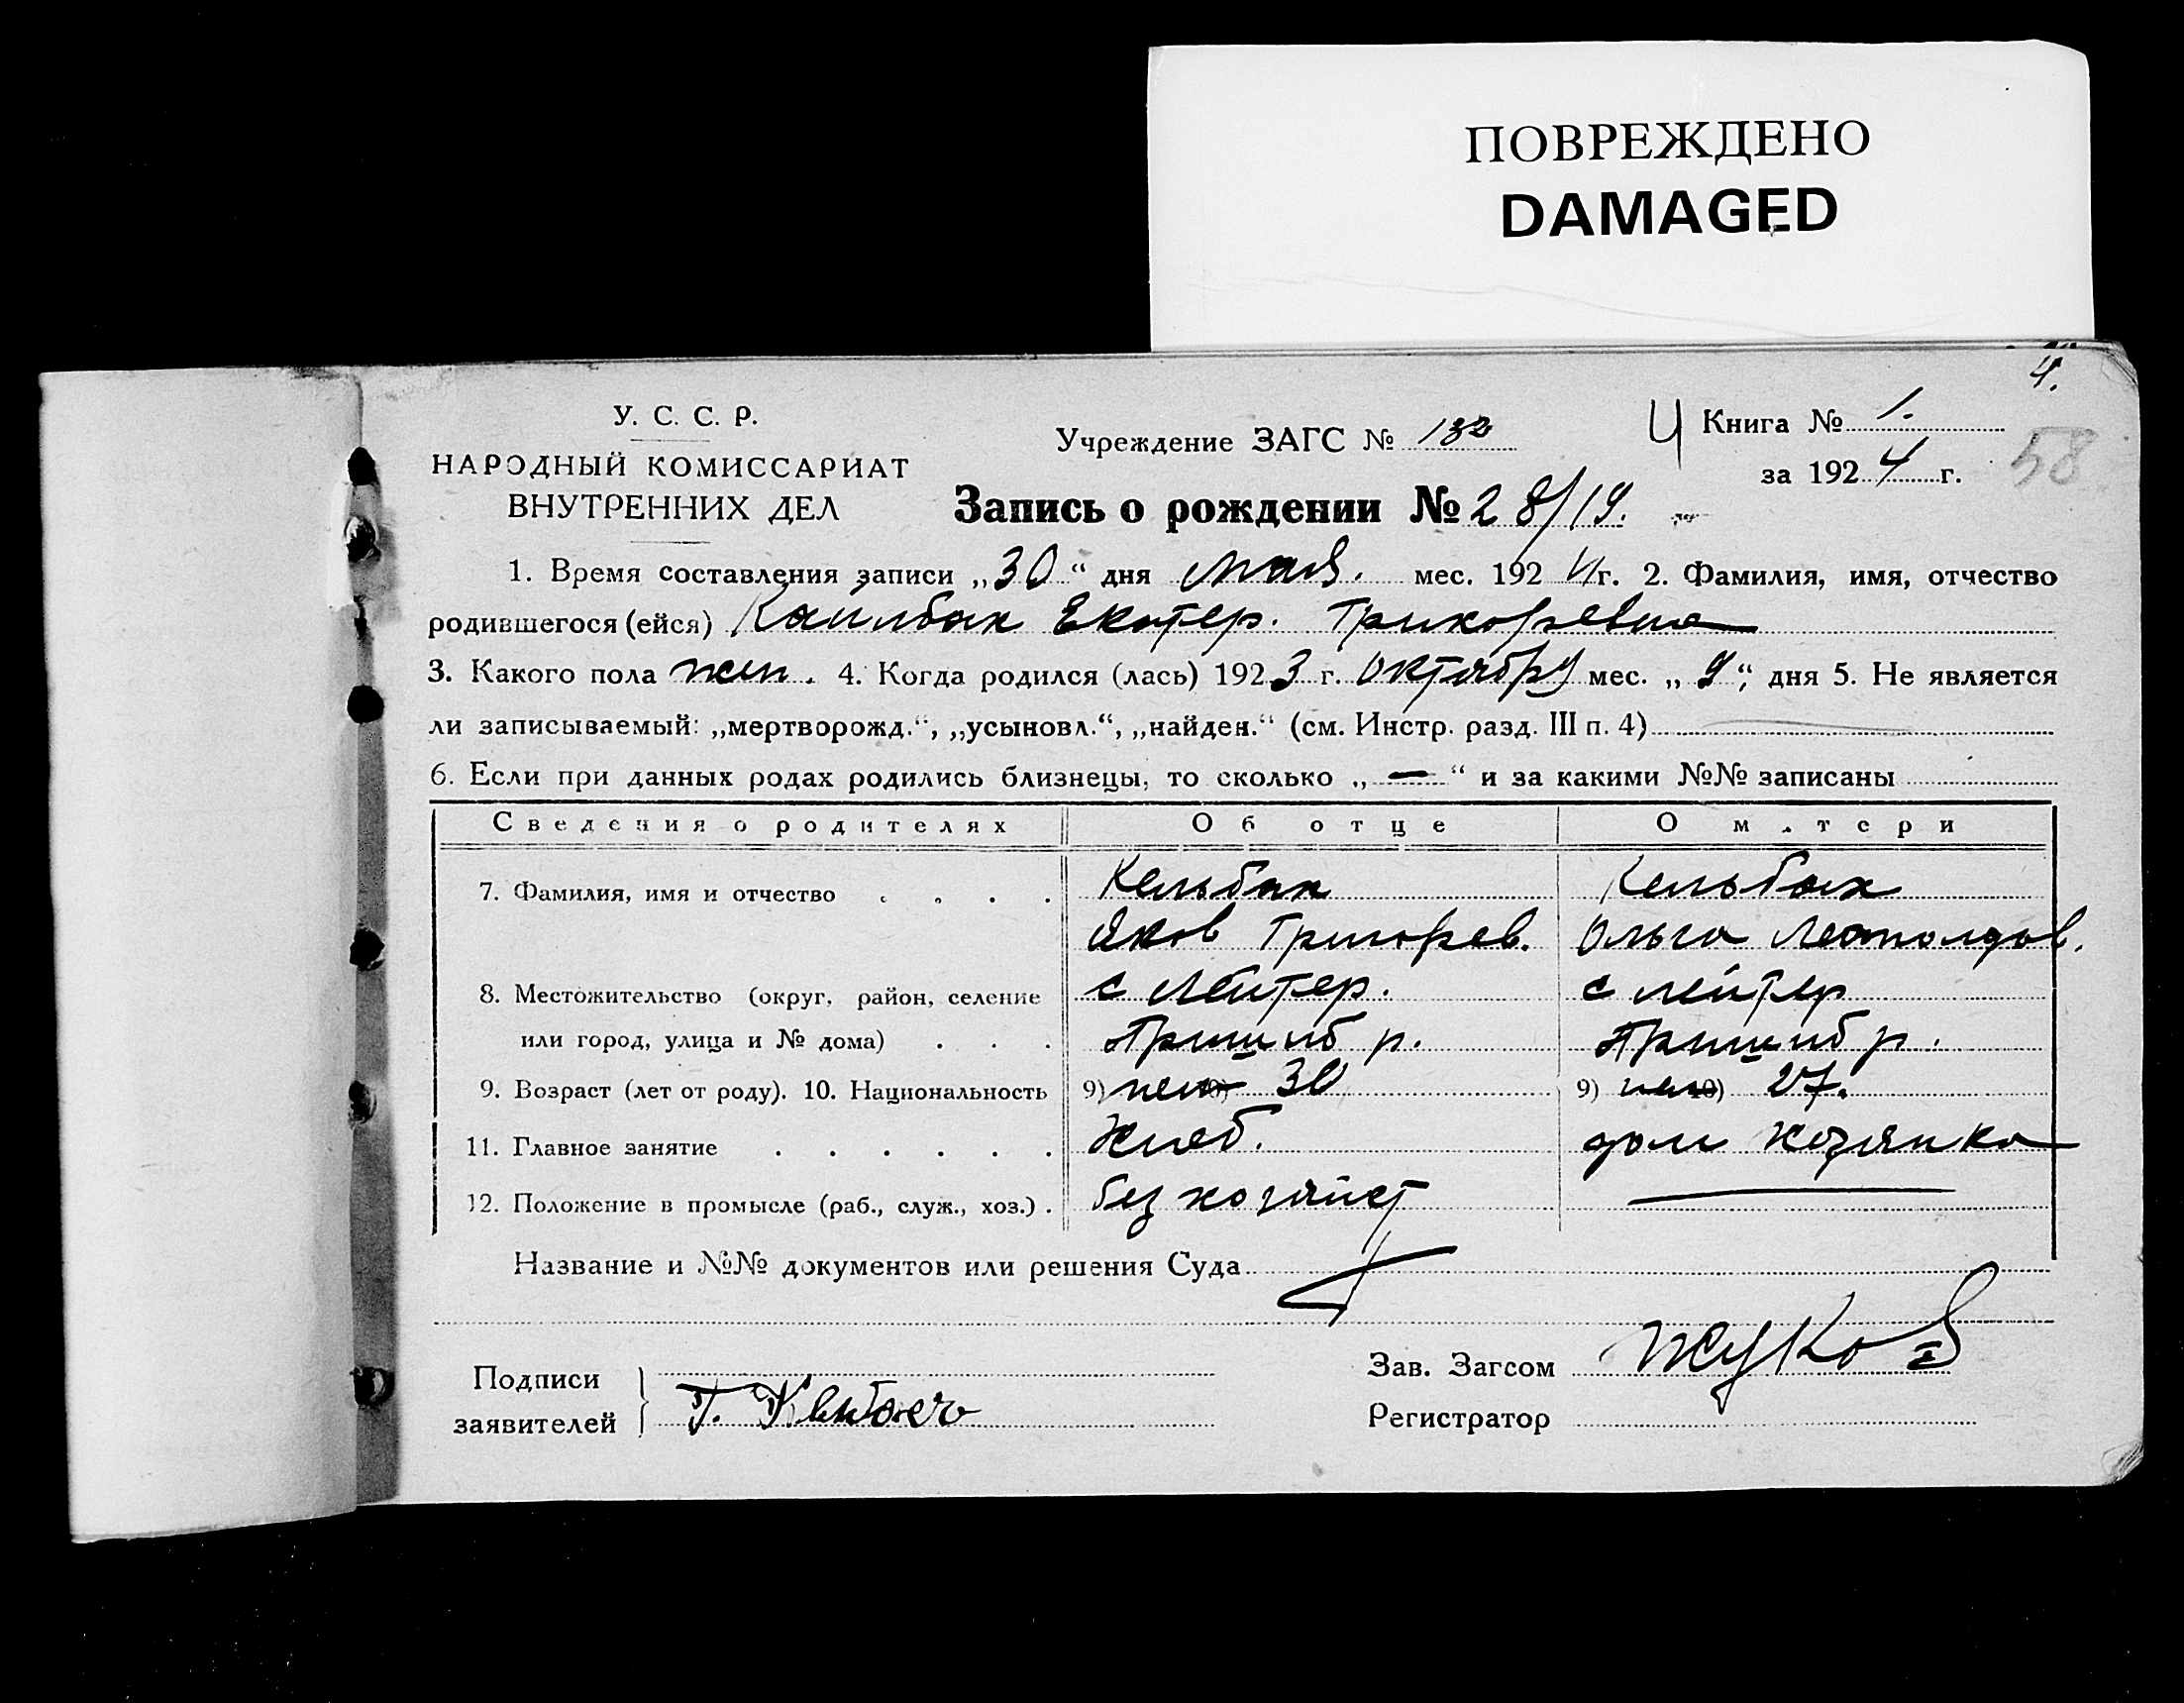 ПОВРЕЖДЕНО
DAMAGED
4.
У. С. С. Р.
НАРОДНЫЙ КОМИССАРИАТ
ВНУТРЕННИХ ДЕЛ
Учреждение ЗАГС № 132
Ч Книга № 1.
за 1924 г.
58
Запись о рождении № 28/19.
1. Время составления записи „30“ дня мая. мес. 1924 г. 2. Фамилия, имя, отчество
родившегося (ейся) Кайлбах Екатер. Григорьевна
3. Какого пола жен. 4. Когда родился (лась) 1923 г. Октябру мес. „9“ дня 5. Не является
ли записываемый: „мертворожд.“, „усыновл.“, „найден.“ (см. Инстр. разд. III п. 4)
6. Если при данных родах родились близнецы, то сколько „—“ и за какими №№ записаны
Сведения о родителях Об отце О матери
7. Фамилия, имя и отчество . . . . Кельбах Кельбах
Яков Григорев. Ольга Леополдов.
8. Местожительство (округ, район, селение с Лейтер. с лейтер
или город, улица и № дома) . . . Пришиб р. Пришиб р.
9. Возраст (лет от роду). 10. Национальность 9) нем 10) 30 9) нем 10) 27.
11. Главное занятие . . . . . . Хлеб. дом хозянка
12. Положение в промысле (раб., служ., хоз.) . без хозяйст
Название и №№ документов или решения Суда
Подписи
заявителей
Г. Кельбахъ
Зав. Загсом Жуков
Регистратор